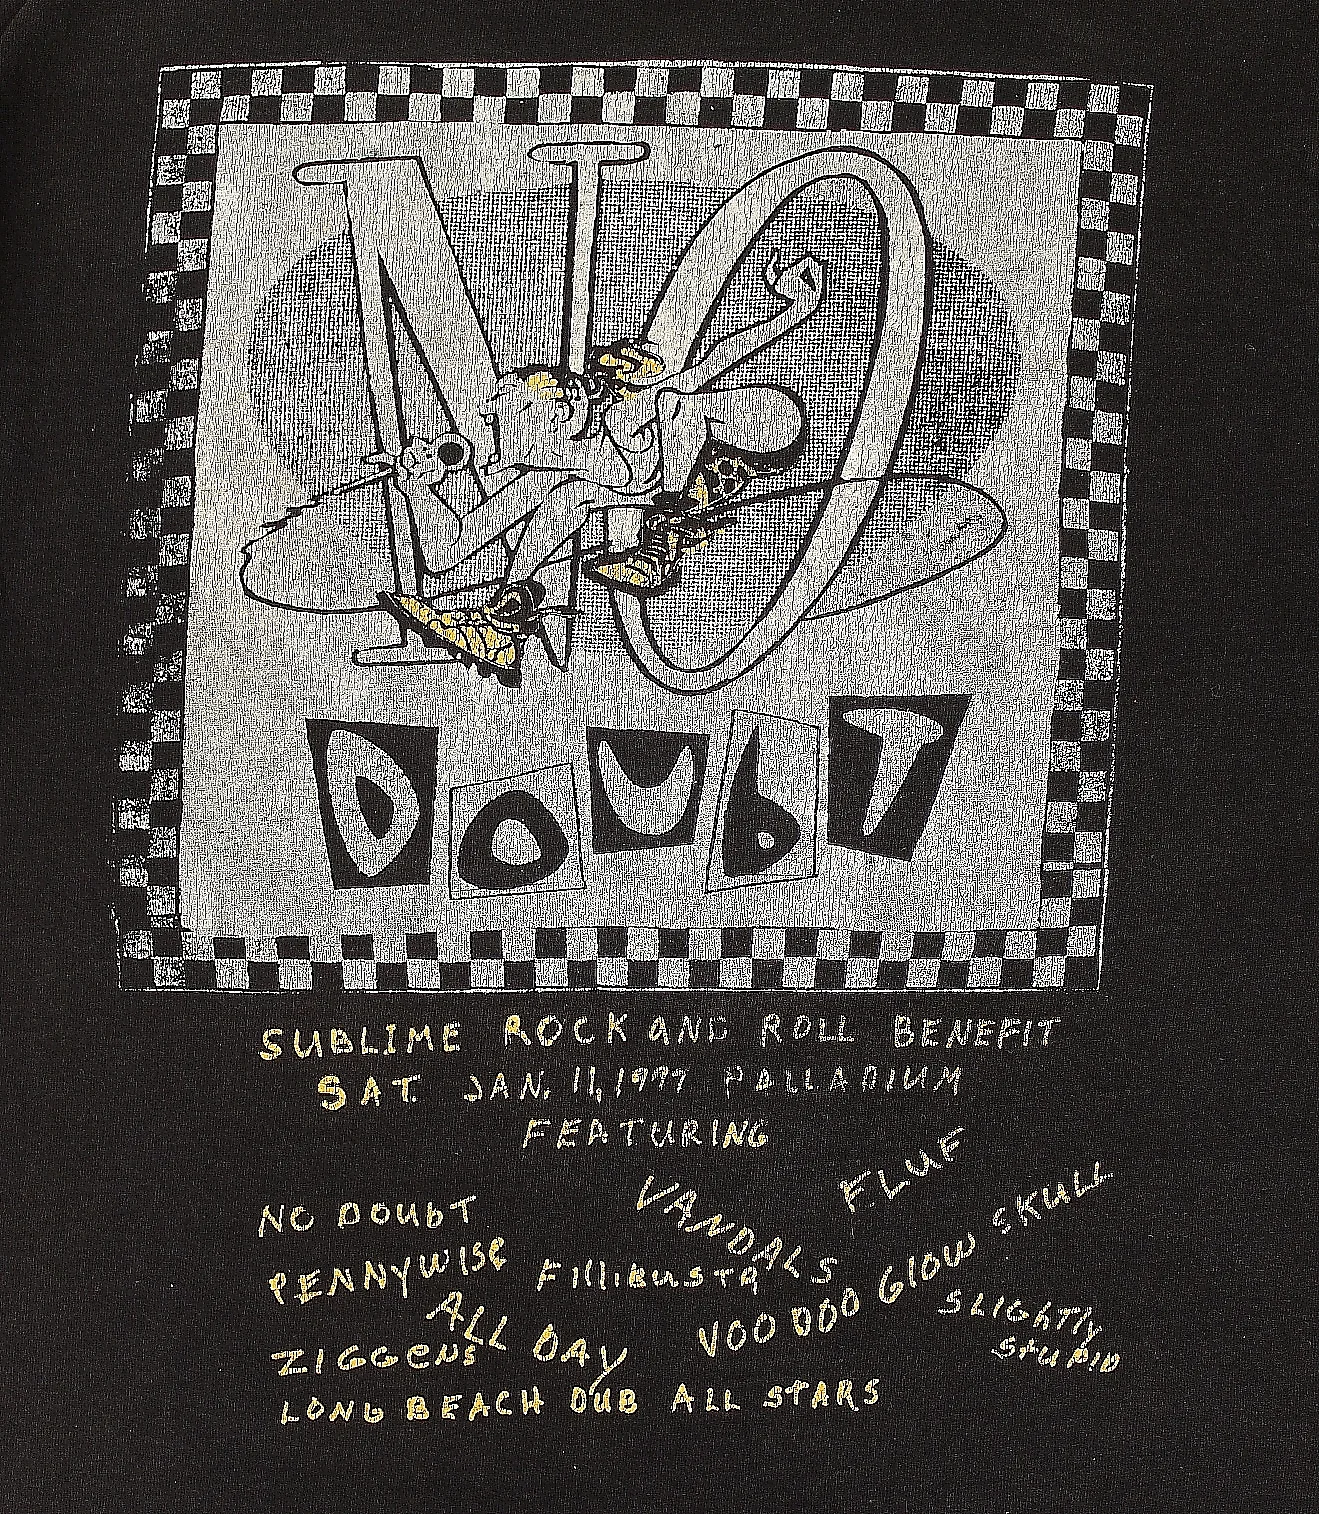 NO
DOUbT
SUBLIME ROCK AND ROLL BENEFIT
SAT. JAN. 11, 1997 PALLADIUM
FEATURING
NO DOUbT
VANDALS
FLUF
PENNYWISE
FIllIBUSTA
VOO DOO GLOW SKULL
ALL DAY
SLIGhTly
STUPID
ZIGGENS
LONG BEACH DUB ALL STARS